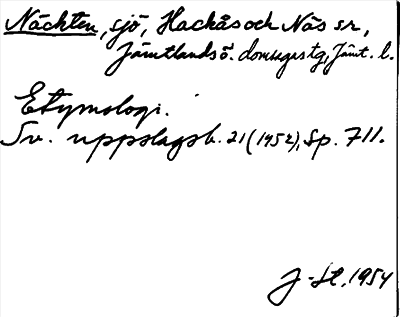 Näckten, sjö, Hackås och Näs sr,
Jämtlands ö. domsagas tg, Jämt. l.
Etymologi.
Sv. uppslagsb. 21 (1952), sp. 711.
J-St, 1954